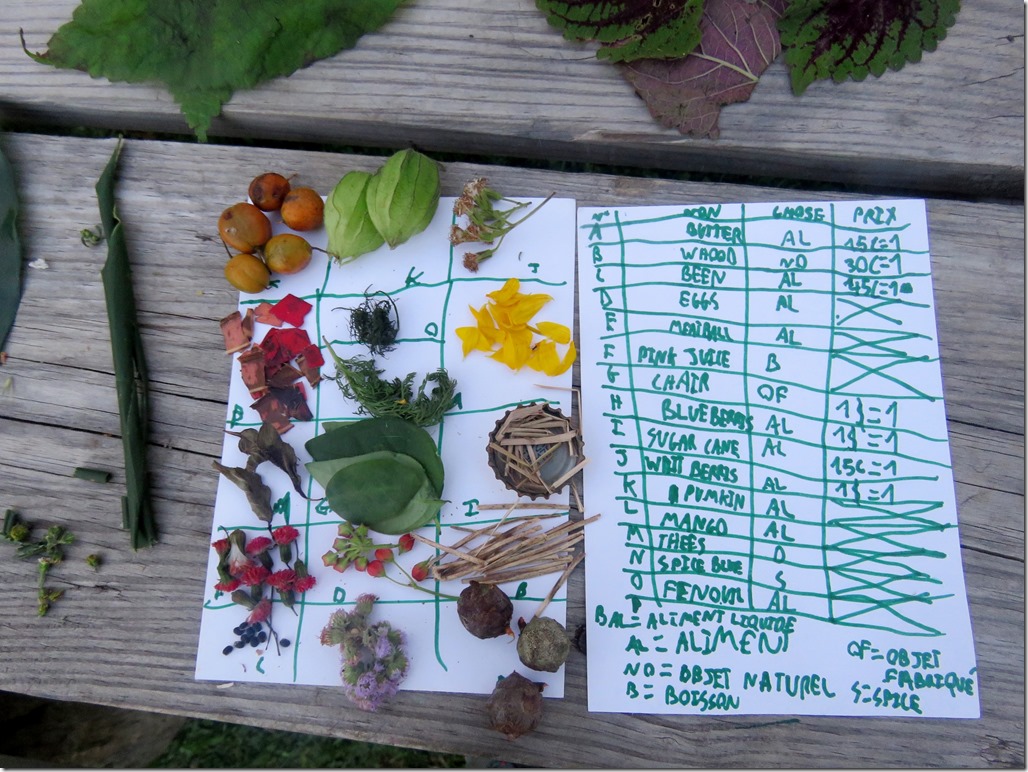 K
K
J
O
P
M
G
I
D
B
C
N NON CHOSE PRIX
A BUTTER AL 15C=1
B WHOOD NO 30C=1
C BEEN AL 145C=1
D EGGS AL
E MEATBALL AL
F PINK JUICE B
G CHAIR OF
H BLUEBERRIS AL 1}=1
I SUGAR CANE AL 1}=1
J WHIT BERRIS AL 15C=1
K PUMKIN AL 1}=1
L MANGO AL
M THEES O
N SPICE BLUE S
O FENOUIL AL
P
BAL=ALIMENT LIQUIDE
AL=ALIMENT
NO=OBJET NATUREL
B=BOISSON
OF=OBJET
FABRIQUÉ
S=SPICE